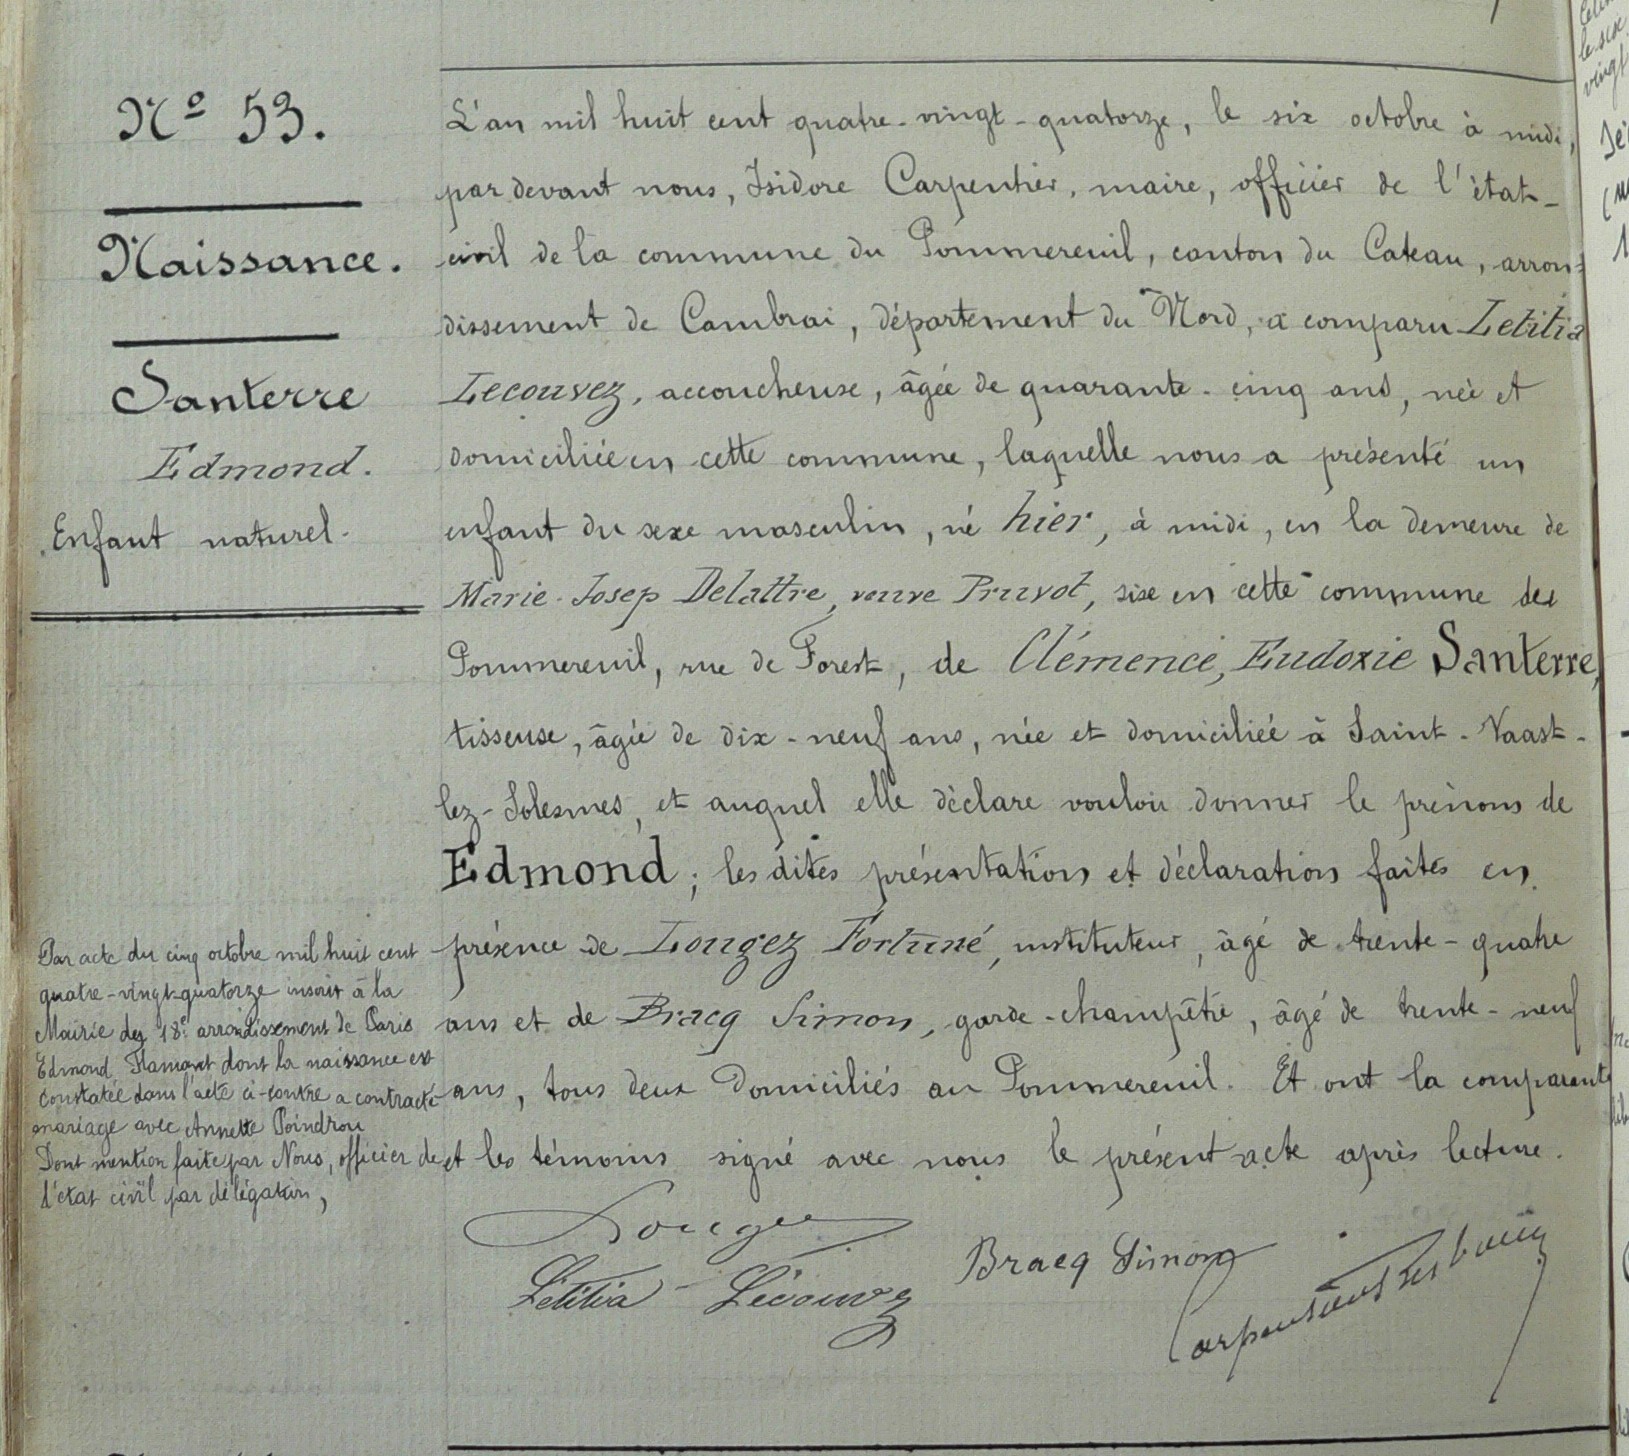 Nº 53.
Naissance.
Santerre
Edmond.
Enfant naturel.
L'an mil huit cent quatre-vingt-quatorze, le six octobre à midi,
par devant nous, Isidore Carpentier, maire, officier de l'état-
civil de la commune du Pommereuil, canton du Cateau, arron=
dissement de Cambrai, département du Nord, a comparu Letitia
Lecouvez, accoucheuse, âgée de quarante-cinq ans, née et
domiciliée en cette commune, laquelle nous a présenté un
enfant du sexe masculin, né hier, à midi, en la demeure de
Marie-Josep Delattre, veuve Pruvot, sise en cette commune de
Pommereuil, rue de Forest, de Clémence, Eudoxie Santerre,
tisseuse, âgée de dix-neuf ans, née et domiciliée à Saint-Vaast-
lez-Solesmes, et auquel elle déclare vouloir donner le prénoms de
Edmond; les dites présentation et déclaration faites en
présence de Longez Fortuné, instituteur, âgé de trente-quatre
ans et de Bracq Simon, garde-champêtre, âgé de trente-neuf
ans, tous deux domiciliés au Pommereuil. Et ont la comparante
et les témoins signé avec nous le présent acte après lecture.
Par acte du cinq octobre mil huit cent
quatre-vingt-quatorze inscrit à la
Mairie du 18e arrondissement de Paris
Edmond dont la naissance est
constatée dans l'acte ci-contre a contracté
mariage avec Annette Poindron
Dont mention faite par Nous, officier de
l'état civil par délégation,
Longez
Letitia Lecouvez
Bracq Simon